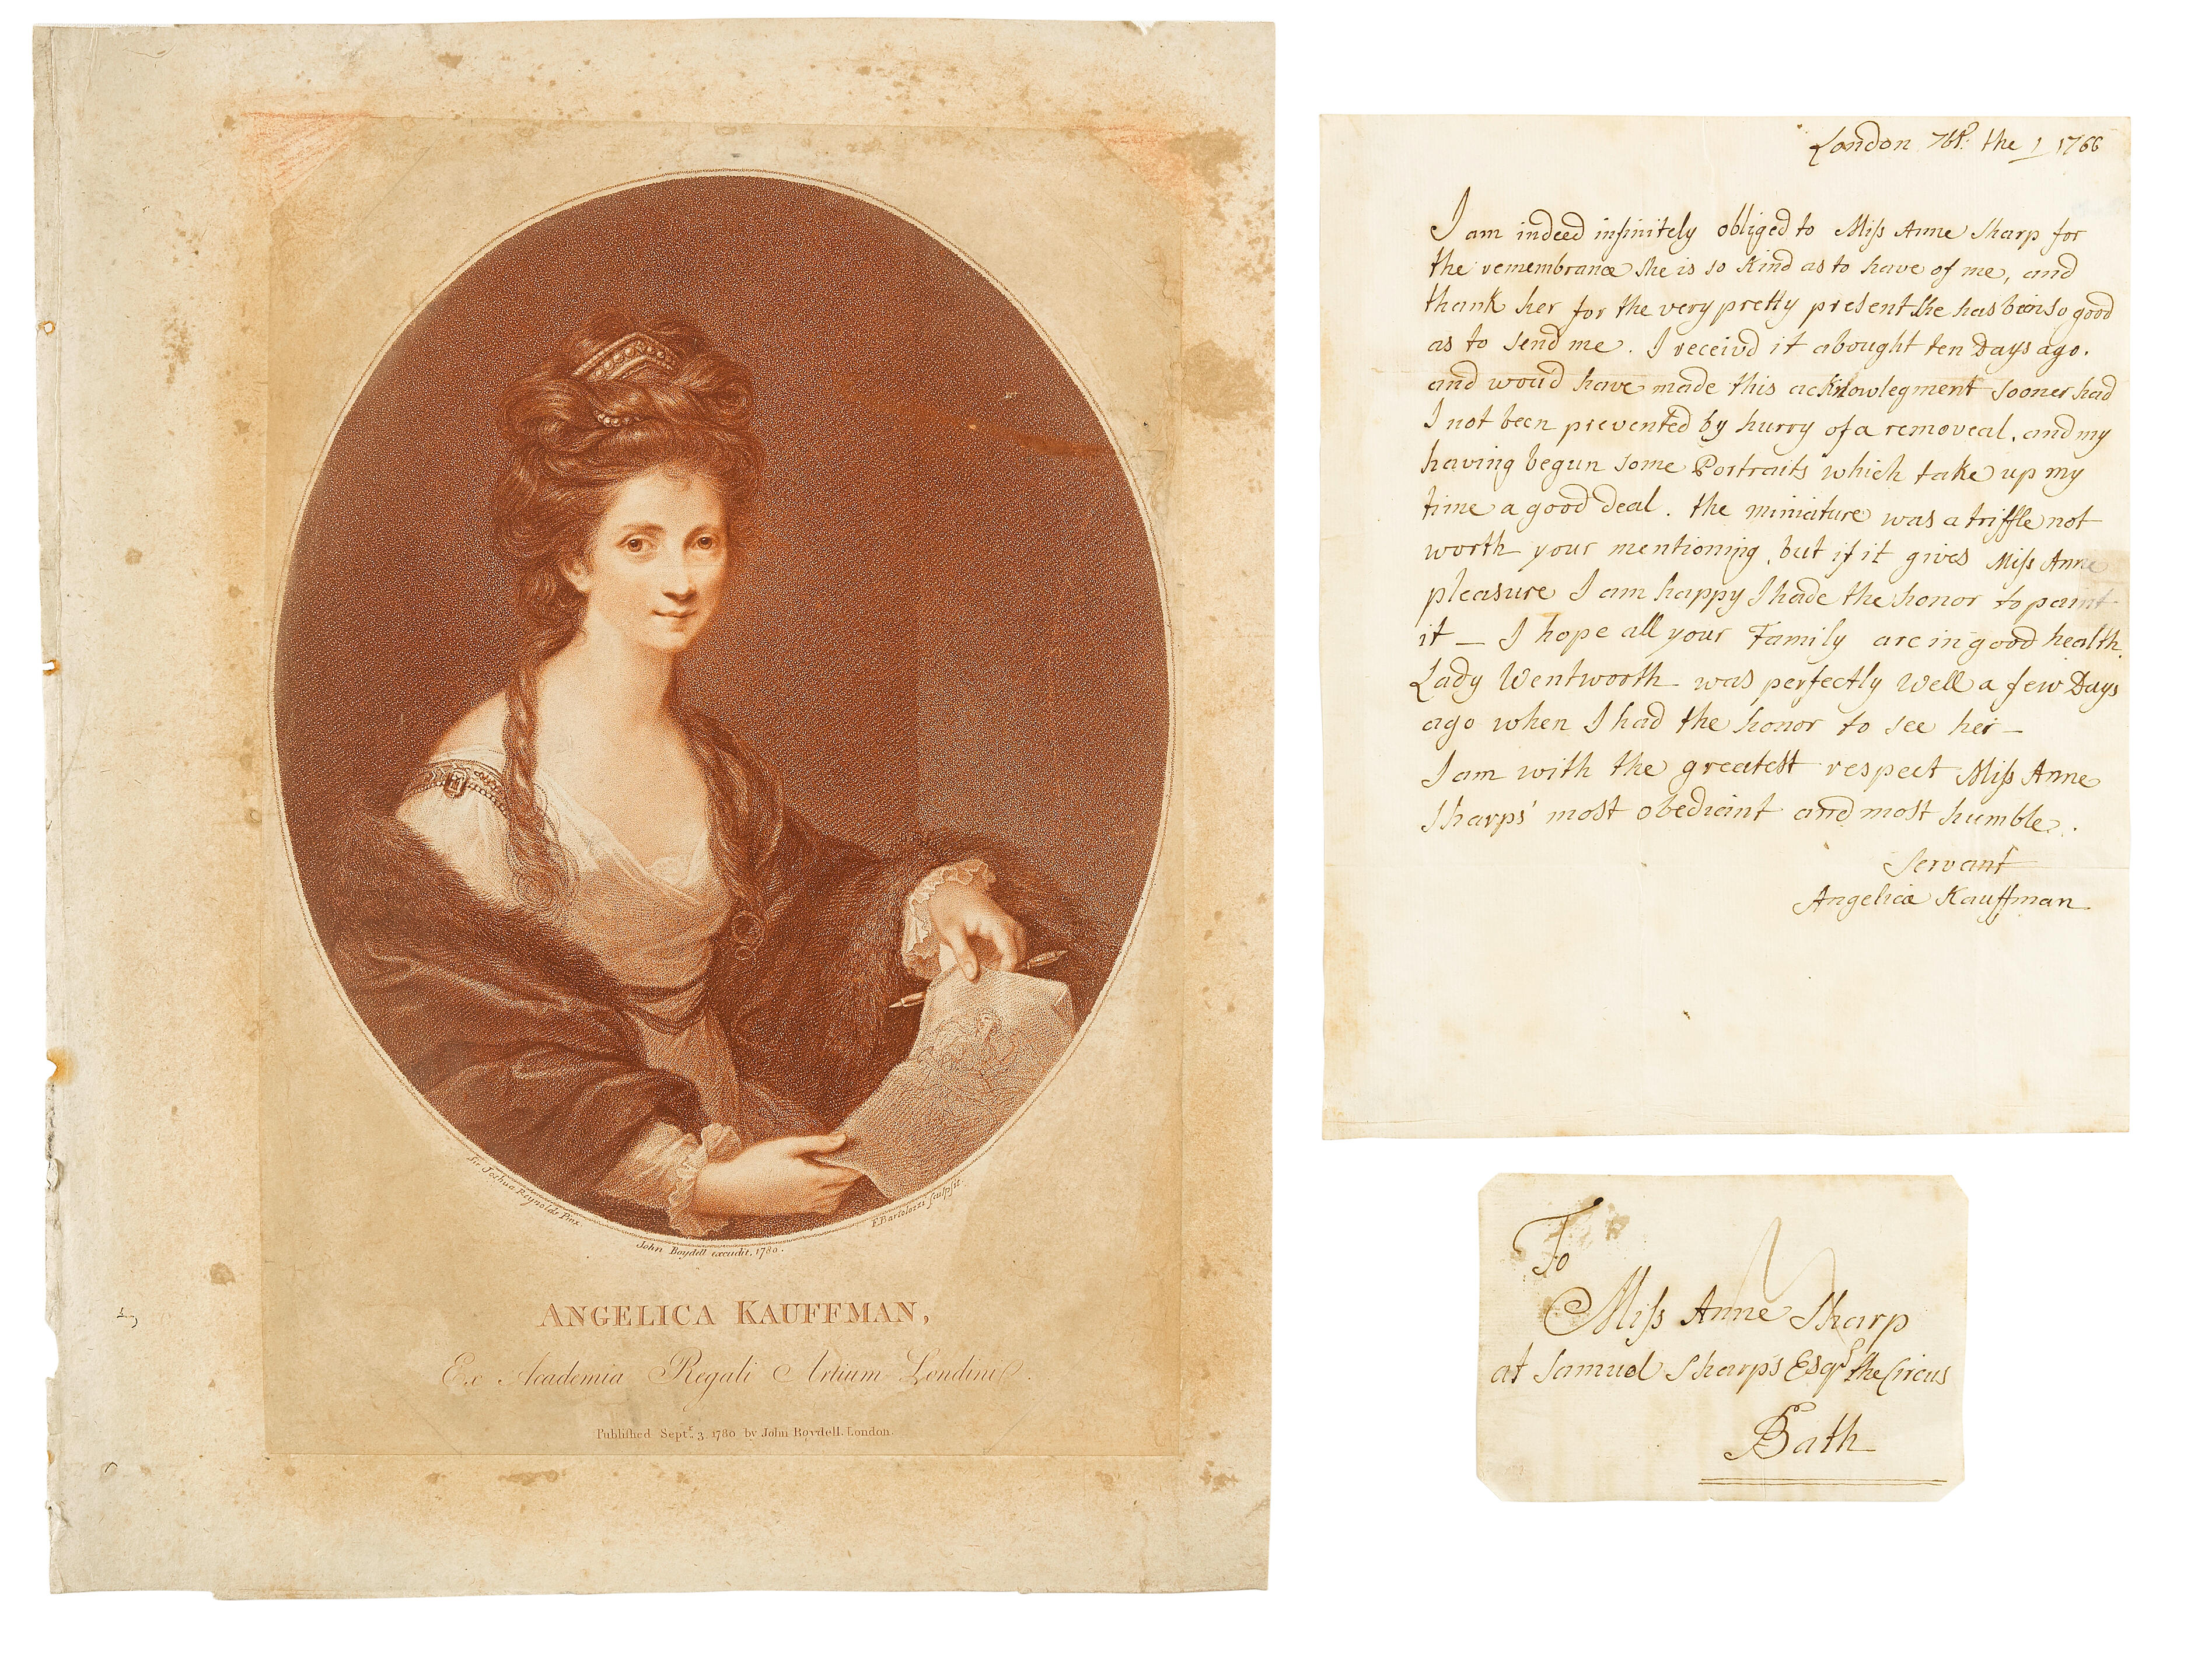 Sir Joshua Reynolds Pinx.
F. Bartolozzi sculpsit.
John Boydell excudit. 1780.
ANGELICA KAUFFMAN,
Ex Academia Regali Artium Londini.
Published Septr. 3. 1780 by John Boydell. London.
London 7br: the 1 1766
I am indeed infinitely obliged to Miſs Anne Sharp for
the remembrance She is so Kind as to have of me, and
thank her for the very pretty present She has bein so good
as to Send me. I receivd it abought ten Days ago.
and woud have made this acknowlegment Sooner had
I not been prevented by hurry of a removeal, and my
having begun Some Portraits which take up my
time a good deal. the miniature was a triffle not
worth your mentioning, but if it gives Miſs Anne
pleasure I am happy I hade the honor to paint
it — I hope all your Family are in good health.
Lady Wentworth was perfectly Well a few Days
ago when I had the honor to see her —
I am with the greatest respect Miſs Anne
Sharps' most obediant and most humble.
Servant
Angelica Kauffman
To
Miſs Anne Sharp
at Samuel Sharps Esqr the Circus
Bath